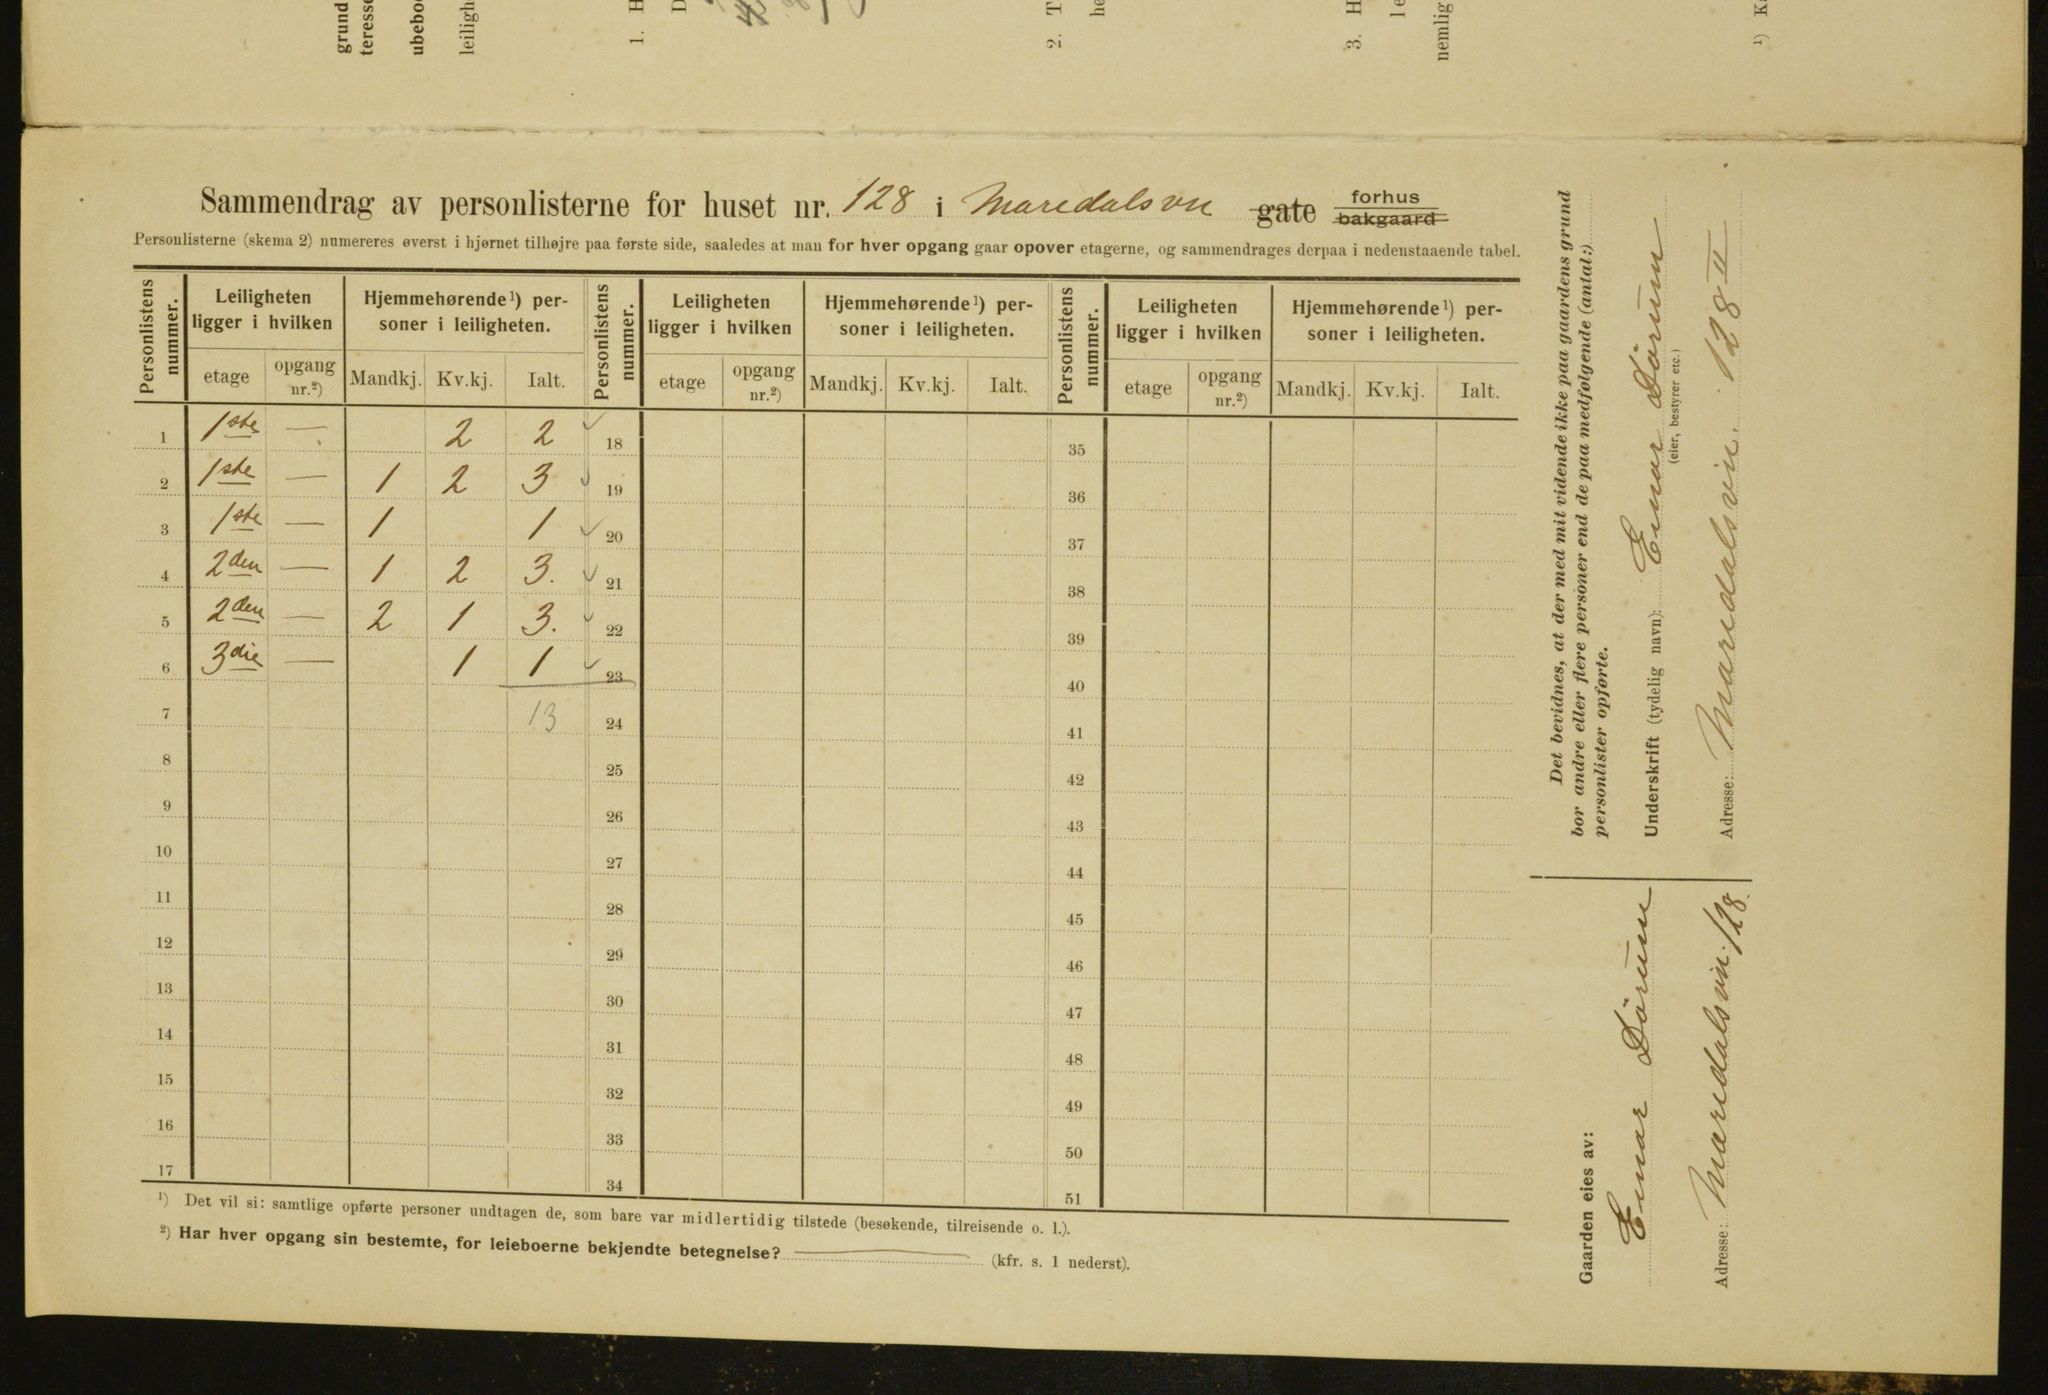 grund
teresse
ubeboe
leiligh
1. H
D
2. T
he
3. H
le
nemlig
¹) Ka
Sammendrag av personlisterne for huset nr. 128 i Maredalsvn gate forhus bakgaard
Personlisterne (skema 2) numereres øverst i hjørnet tilhøjre paa første side, saaledes at man for hver opgang gaar opover etagerne, og sammendrages derpaa i nedenstaaende tabel.
Personlistens nummer. Leiligheten ligger i hvilken Hjemmehørende¹) personer i leiligheten. Personlistens nummer. Leiligheten ligger i hvilken Hjemmehørende¹) personer i leiligheten. Personlistens nummer. Leiligheten ligger i hvilken Hjemmehørende¹) personer i leiligheten.
etage opgang nr.²) Mandkj. Kv.kj. Ialt. etage opgang nr.²) Mandkj. Kv.kj. Ialt. etage opgang nr.²) Mandkj. Kv.kj. Ialt.
1 1ste — 2 2 ✓ 18 35
2 1ste — 1 2 3 ✓ 19 36
3 1ste — 1 1 ✓ 20 37
4 2den — 1 2 3. ✓ 21 38
5 2den — 2 1 3. ✓ 22 39
6 3die — 1 1 ✓ 23 40
7 13 24 41
8 25 42
9 26 43
10 27 44
11 28 45
12 29 46
13 30 47
14 31 48
15 32 49
16 33 50
17 34 51
¹) Det vil si: samtlige opførte personer undtagen de, som bare var midlertidig tilstede (besøkende, tilreisende o. l.).
²) Har hver opgang sin bestemte, for leieboerne bekjendte betegnelse? — (kfr. s. 1 nederst).
Det bevidnes, at der med mit vidende ikke paa gaardens grund
bor andre eller flere personer end de paa medfølgende (antal:)
personlister opførte.
Underskrift (tydelig navn): Einar Dörum
(eier, bestyrer etc.)
Adresse: Maredalsvin. 128 II
Gaarden eies av:
Einar Dörum
Adresse: Maredalsvin. 128.